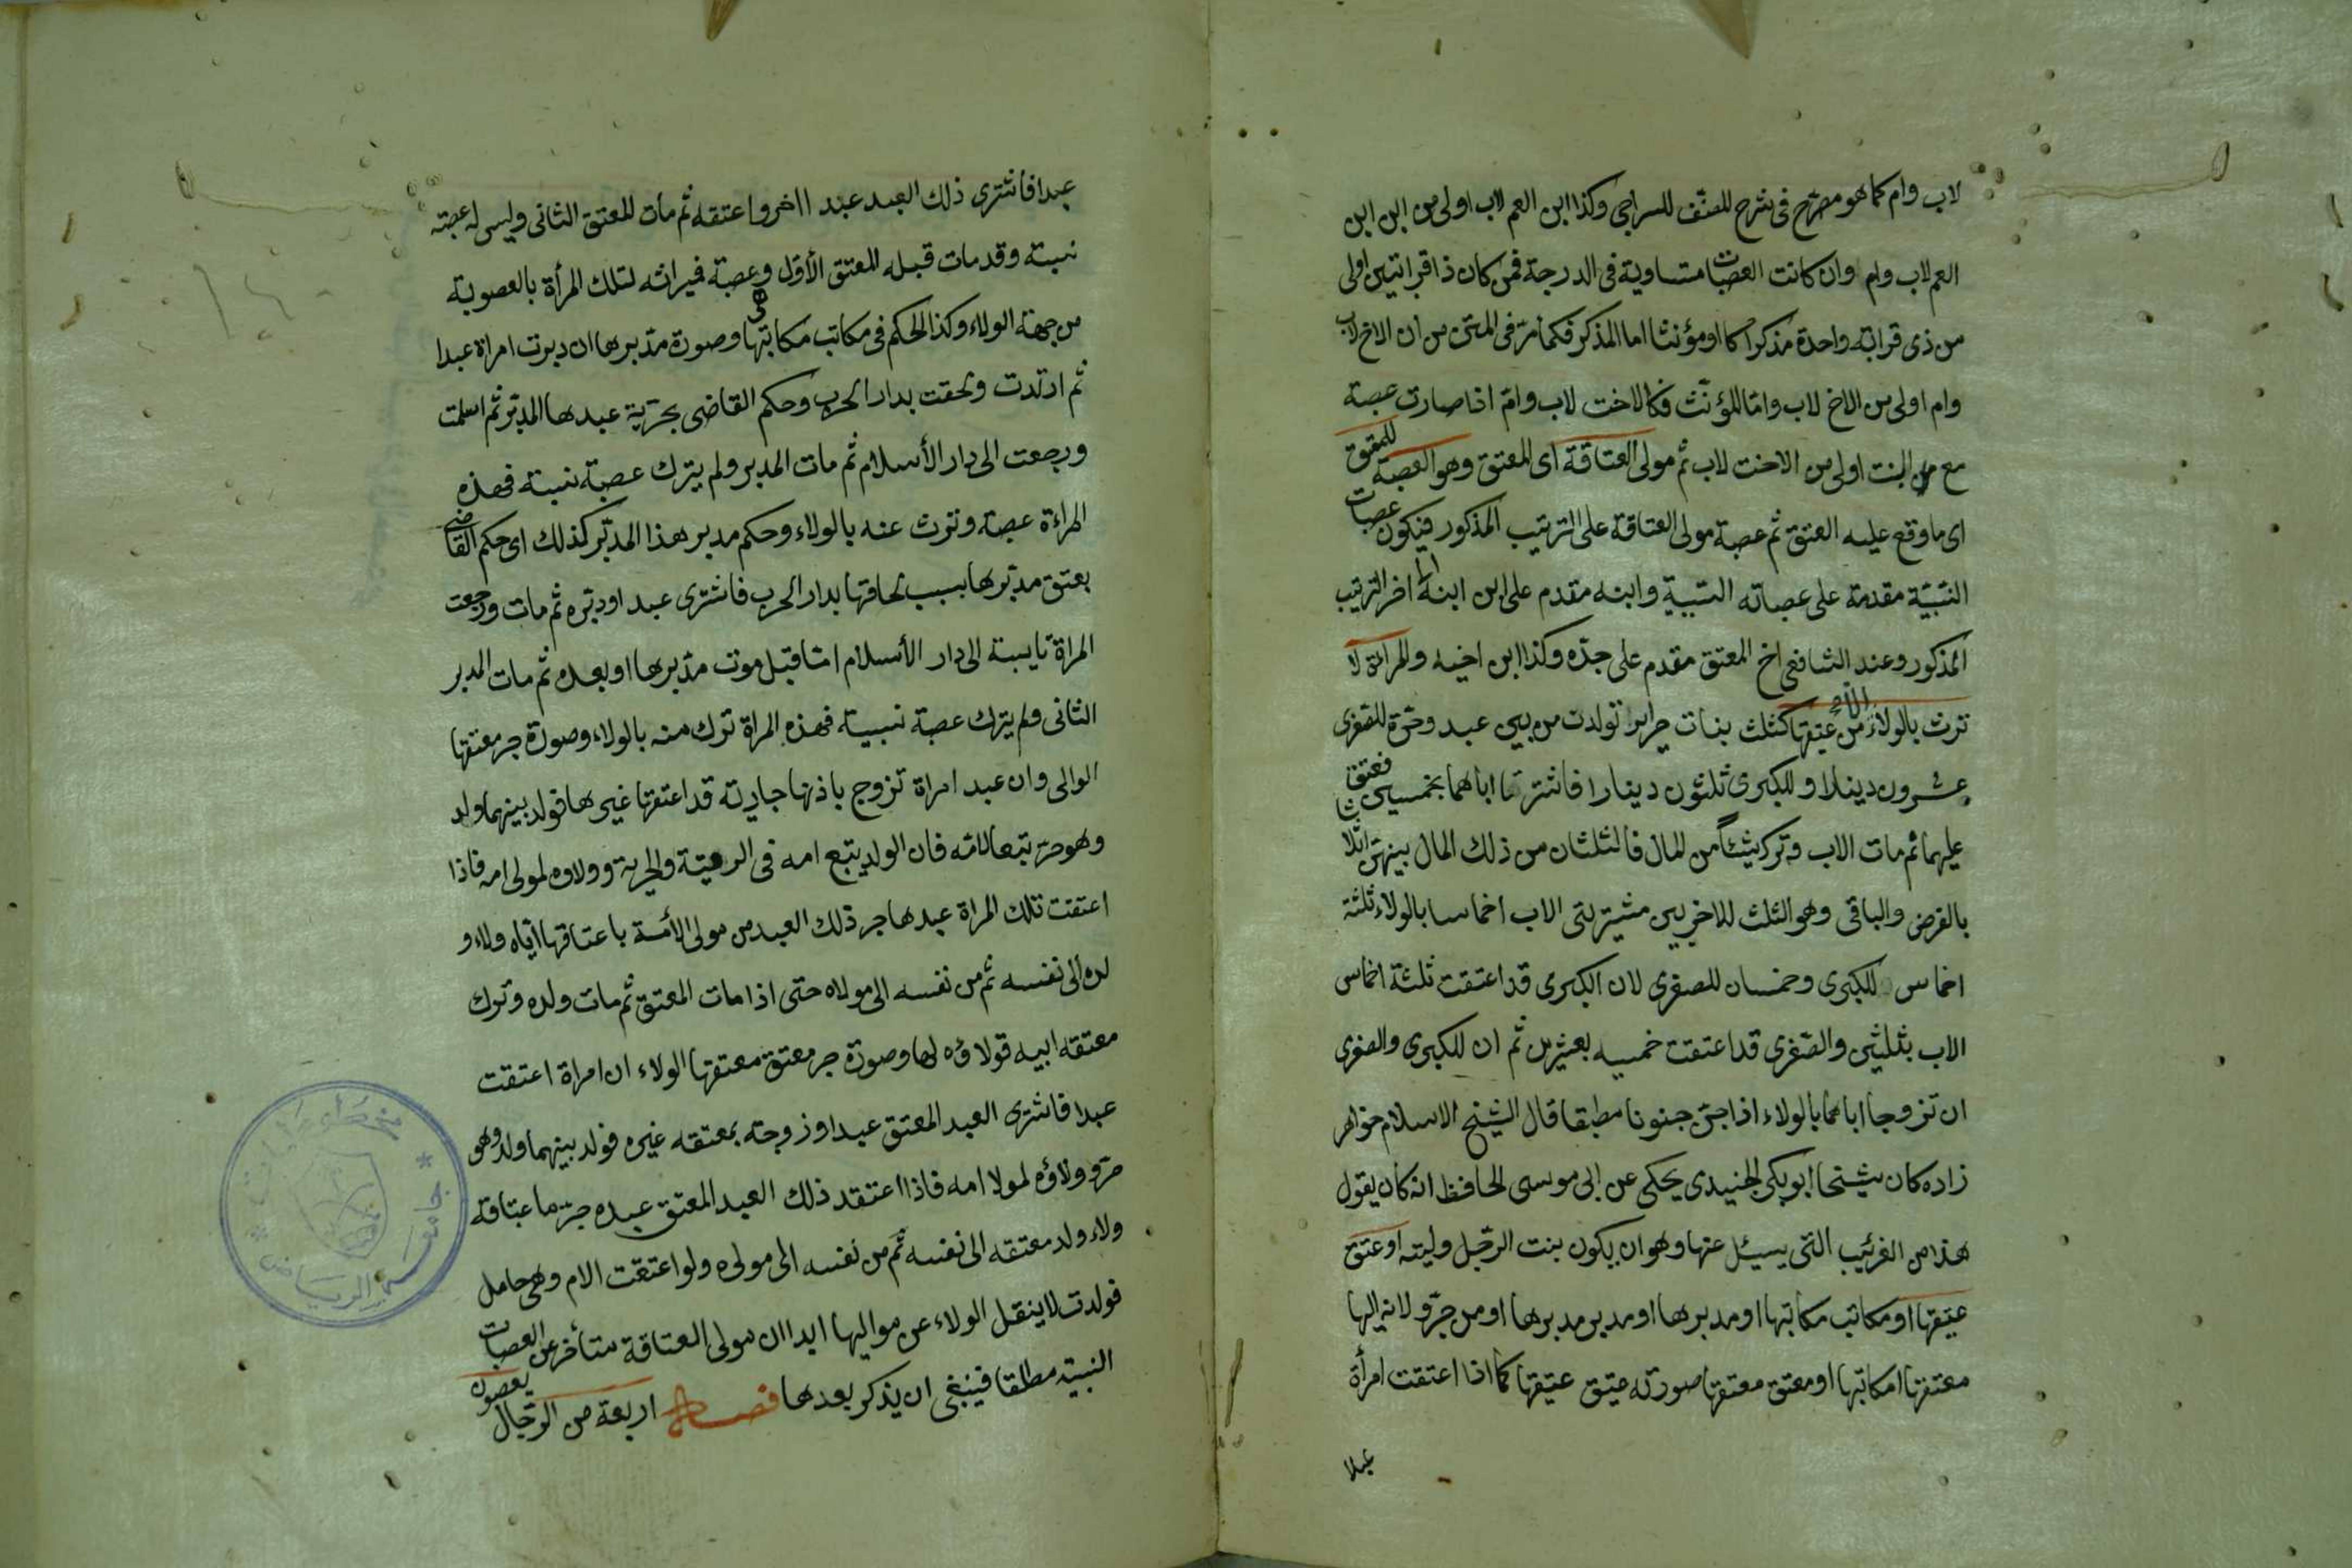 لاب وام كما هو مصرح فى شرح المصنف للسراجى وكذا ابن العم لاب اولى من ابن ابن
العم لاب وام وان كانت العصبات متساوية فى الدرجة فمن كان ذا قرابتين اولى
من ذى قرابة واحدة مذكرا كان او مؤنثا اما المذكر فكما مر فى المتن من ان الاخ لاب
وام اولى من الاخ لاب واما المؤنث فكالاخت لاب وام اذا صارت عصبة
مع البنت اولى من الاخت لاب ثم مولى العتاقة اى المعتق وهو العصبة للمعتق
اى ما وقع عليه العتق ثم عصبة مولى العتاقة على الترتيب المذكور فيكون عصبات
النسبية مقدمة على عصباته السببية وابنه مقدم على ابن ابنه الى اخر الترتيب
المذكور وعند الشافعى اخ المعتق مقدم على جده وكذا ابن اخيه والمراة لا
ترث بالولاء الا من عتيقها كثلث بنات حراير تولدت من بين عبد وحرة للصغرى
عشرون دينارا وللكبرى ثلثون دينارا فاشترتا اباهما بخمسين فعتق
عليهما ثم مات الاب وترك شيئا من المال فالثلثان من ذلك المال بينهن اثلاثا
بالفرض والباقى وهو الثلث للاخريين مشتريتى الاب اخماسا بالولاء ثلثة
اخماس للكبرى وخمسان للصغرى لان الكبرى قد اعتقت ثلثة اخماس
الاب بثلثين والصغرى قد اعتقت خمسيه بعشرين ثم ان للكبرى والصغرى
ان تزوجا اباهما بالولاء اذا جن جنونا مطبقا قال الشيخ الاسلام خواهر
زاده كان شيخنا ابو بكر الجنيدى يحكى عن ابى موسى الحافظ انه كان يقول
هذا من الغريب التى يسئل عنها وهو ان يكون بنت الرجل وليته او عتق
عتيقها او مكاتب مكاتبها او مدبرها او مدبر مدبرها او من جر ولائه اليها
معتقها او مكاتبها او معتق معتقها صورته عتيق عتيقها كما اذا اعتقت امرأة
عبدا
عبدا فاشترى ذلك العبد عبدا اخر واعتقه ثم مات المعتق الثانى وليس له عصبة
نسبة وقد مات قبله المعتق الأول وعصبة فميراثه لتلك المرأة بالعصوبة
من جهة الولاء وكذا الحكم فى مكاتب مكاتبها وصورة مدبرها ان دبرت امراة عبدا
ثم ارتدت ولحقت بدار الحرب وحكم القاضى بحرية عبدها المدبر ثم اسلمت
ورجعت الى دار الأسلام ثم مات المدبر ولم يترك عصبة نسبة فهذه
المراءة عصبة وترث عنه بالولاء وحكم مدبر هذا المدبر كذلك اى حكم القاضى
بعتق مدبرها بسبب لحاقها بدار الحرب فاشترى عبدا ودبره ثم مات ورجعت
المراة تايبة الى دار الأسلام اما قبل موت مدبرها او بعده ثم مات المدبر
الثانى ولم يترك عصبة نسبية فهذه المراة ترث منه بالولاء وصورة جر معتقها
الوالى وان عبد امراة تزوج باذنها جارية قد اعتقها غيرها فولد بينهما ولد
وهو حر تبعا لامه فان الولد يتبع امه فى الرقية والحرية وولاءه لمولى امه فاذا
اعتقت تلك المراة عبدها جر ذلك العبد من مولى الأمة باعتاقها اياه ولاء و
لده الى نفسه ثم من نفسه الى مولاه حتى اذا مات المعتق ثم مات ولده وترك
معتقه ابيه فولاؤه لها وصورة جر معتق معتقها الولاء ان امراة اعتقت
عبدا فاشترى العبد المعتق عبدا وزوجته بمعتقه غيره فولد بينهما ولد وهو
حر وولاؤه لمولا امه فاذا اعتقد ذلك العبد المعتق عبده جر باعتاقه
ولاء ولد معتقه الى نفسه ثم من نفسه الى مولاه ولو اعتقت الام وهى حامل
فولدت لا ينقل الولاء عن مواليها ابدا ان مولى العتاقة متأخر عن العصبات
النسبية مطلقا فينبغى ان يذكر بعدها فصل اربعة من الرجال يعصبون
جامعة الرياض